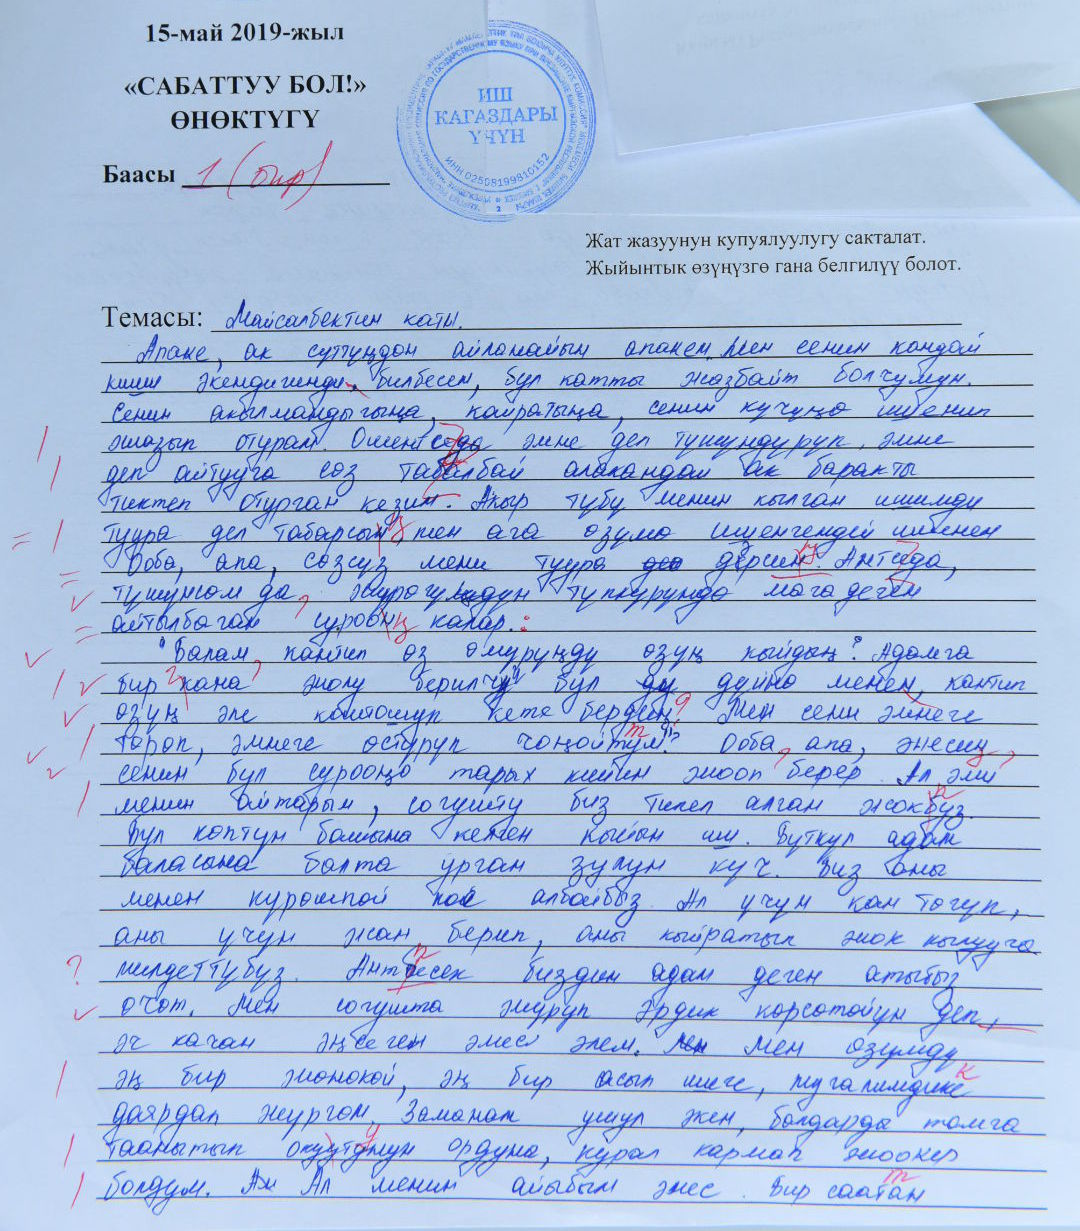 15-май 2019-жыл
«САБАТТУУ БОЛ!»
ӨНӨКТҮГҮ
Баасы 1 (бир)
ИШ
КАГАЗДАРЫ
ҮЧҮН
ИНН 02508199810152
Жат жазуунун купуялуулугу сакталат.
Жыйынтык өзүңүзгө гана белгилүү болот.
Темасы: Майсалбектин каты.
Апаке, ак сүтүңдөн айланайын апакем. Мен сенин кандай
киши экендигиңди, билбесем, бул катты жазбайт болчумун.
Сенин акылмандыгыңа, кайратыңа, сенин күчүңө ишенип
жазып отурам. Ошентседа эмне деп түшүндүрүп, эмне
деп айтууга сөз табалбай алакандай ак баракты
тиктеп отурган кезим. Акыр түбү менин кылган ишимди
туура деп табарсың, мен ага өзүмө ишенгендей ишенем
Ооба, апа, сөзсүз мени туура дерсиң. Антседа,
түшүнсөм да, жүрөгүңдүн түпкүрүндө мага деген
айтылбаган сурооң калар.
"Балам, кантип өз өмүрүңдү өзүң кыйдың? Адамга
бир кана жолу берилчү бул дүйнө менен, кантип
өзүң эле коштошуп кете бердиң? Мен сени эмнеге
төрөп, эмнеге өстүрүп чоңойтүм?" Ооба, апа, энесиң,
сенин бул сурооңо тарых кийин жооп берер. Ал эми
менин айтарым, согушту биз тилеп алган жокбуз.
Бул көптүн башына келген кыйын иш. Бүткүл адам
баласына балта урган зулум күч. Биз аны
менен күрөшпөй кое албайбыз. Ал үчүн кан төгүп,
аны үчүн жан берип, аны кыйратып жок кылууга
милдеттүбүз. Антбесек биздин адам деген атыбыз
өчөт. Мен согушта жүрүп эрдик көрсөтөйүн деп,
эч качан эңсеген эмес элем. Мен өзүмдү
эң бир жөнөкөй, эң бир асыл ишке, мугалимдике
даярдап жүргөм. Заманам ушул экен, балдарда тамга
таанытып окуутумун ордуна, курал кармап жоокер
болдум. Ал менин айыбым эмес. Бир сааттан